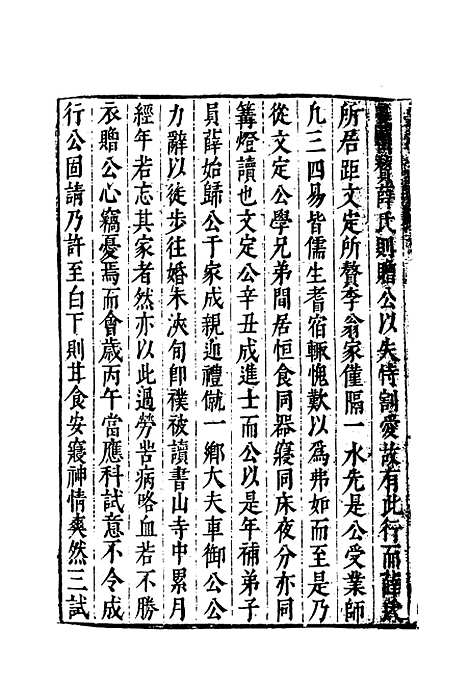 贅薛氏則贈公以失恃割愛故有此行而薛氏
所居距文定所贅李翁家僅隔一水先是公受業師
凡三四易皆儒生耆宿輒愧歎以為弗如而至是乃
從文定公學兄弟間居恒食同器寢同床夜分亦同
篝燈讀也文定公辛丑成進士而公以是年補弟子
員薛始歸公于家成親迎禮僦一鄉大夫車御公公
力辭以徒步往婚未浹旬即襆被讀書山寺中累月
經年若忘其家者然亦以此過勞苦病咯血若不勝
衣贈公心竊憂焉而會歲丙午當應科試意不令成
行公固請乃許至白下則甘食安寢神情爽然三試